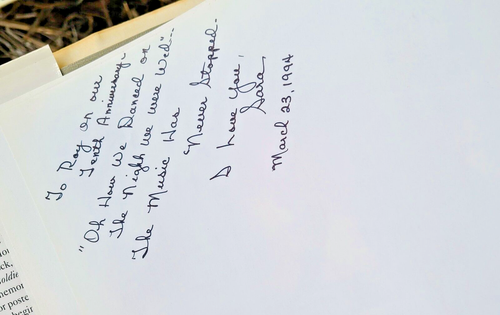 To Roy on our
Tenth Anniversary-
"Oh How We Danced on
The Night We were Wed"...
The Music Has
Never Stopped-
I Love You,
Sara
March 23, 1994
ck,
oldie
memor
or poste
begin